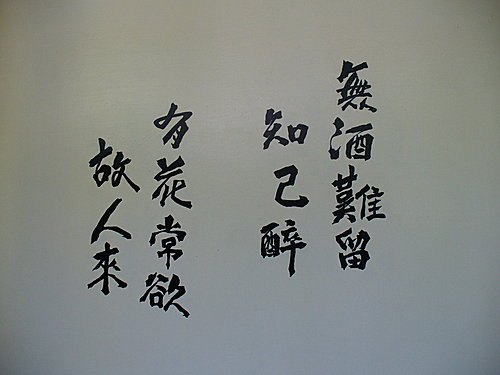 無酒難留
知己醉
有花常欲
故人來